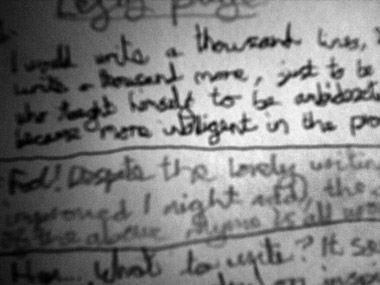 Lefty page
I would write a thousand lines,
write a thousand more, just to be
who taught himself to be ambidext
became more intligent in the pro
Fool! Despite the lovely writin
improved I might add, the
of the above rhyme is all wro
Hm.. What to write? It se